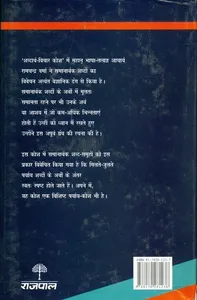 'शब्दार्थ-विचार कोश' में महान् भाषा-तत्वज्ञ आचार्य
रामचन्द्र वर्मा ने समानार्थक शब्दों का
विवेचन अत्यंत वैज्ञानिक ढंग से किया है।
समानार्थक शब्दों के अर्थों में मूलतः
समानता रहने पर भी उनके अर्थ
या आशय में जो कम-अधिक भिन्नताएं
होती हैं उन्हीं को ध्यान में रखते हुए
उन्होंने इस अपूर्व ग्रंथ की रचना की है।
इस कोश में समानार्थक शब्द-समूहों को इस
प्रकार विवेचित किया गया है कि मिलते-जुलते
पर्याय शब्दों के अर्थों के अंतर
स्वतः स्पष्ट होते जाते हैं। अपने में,
यह कोश एक विशिष्ट पर्याय-कोश भी है।
राजपाल